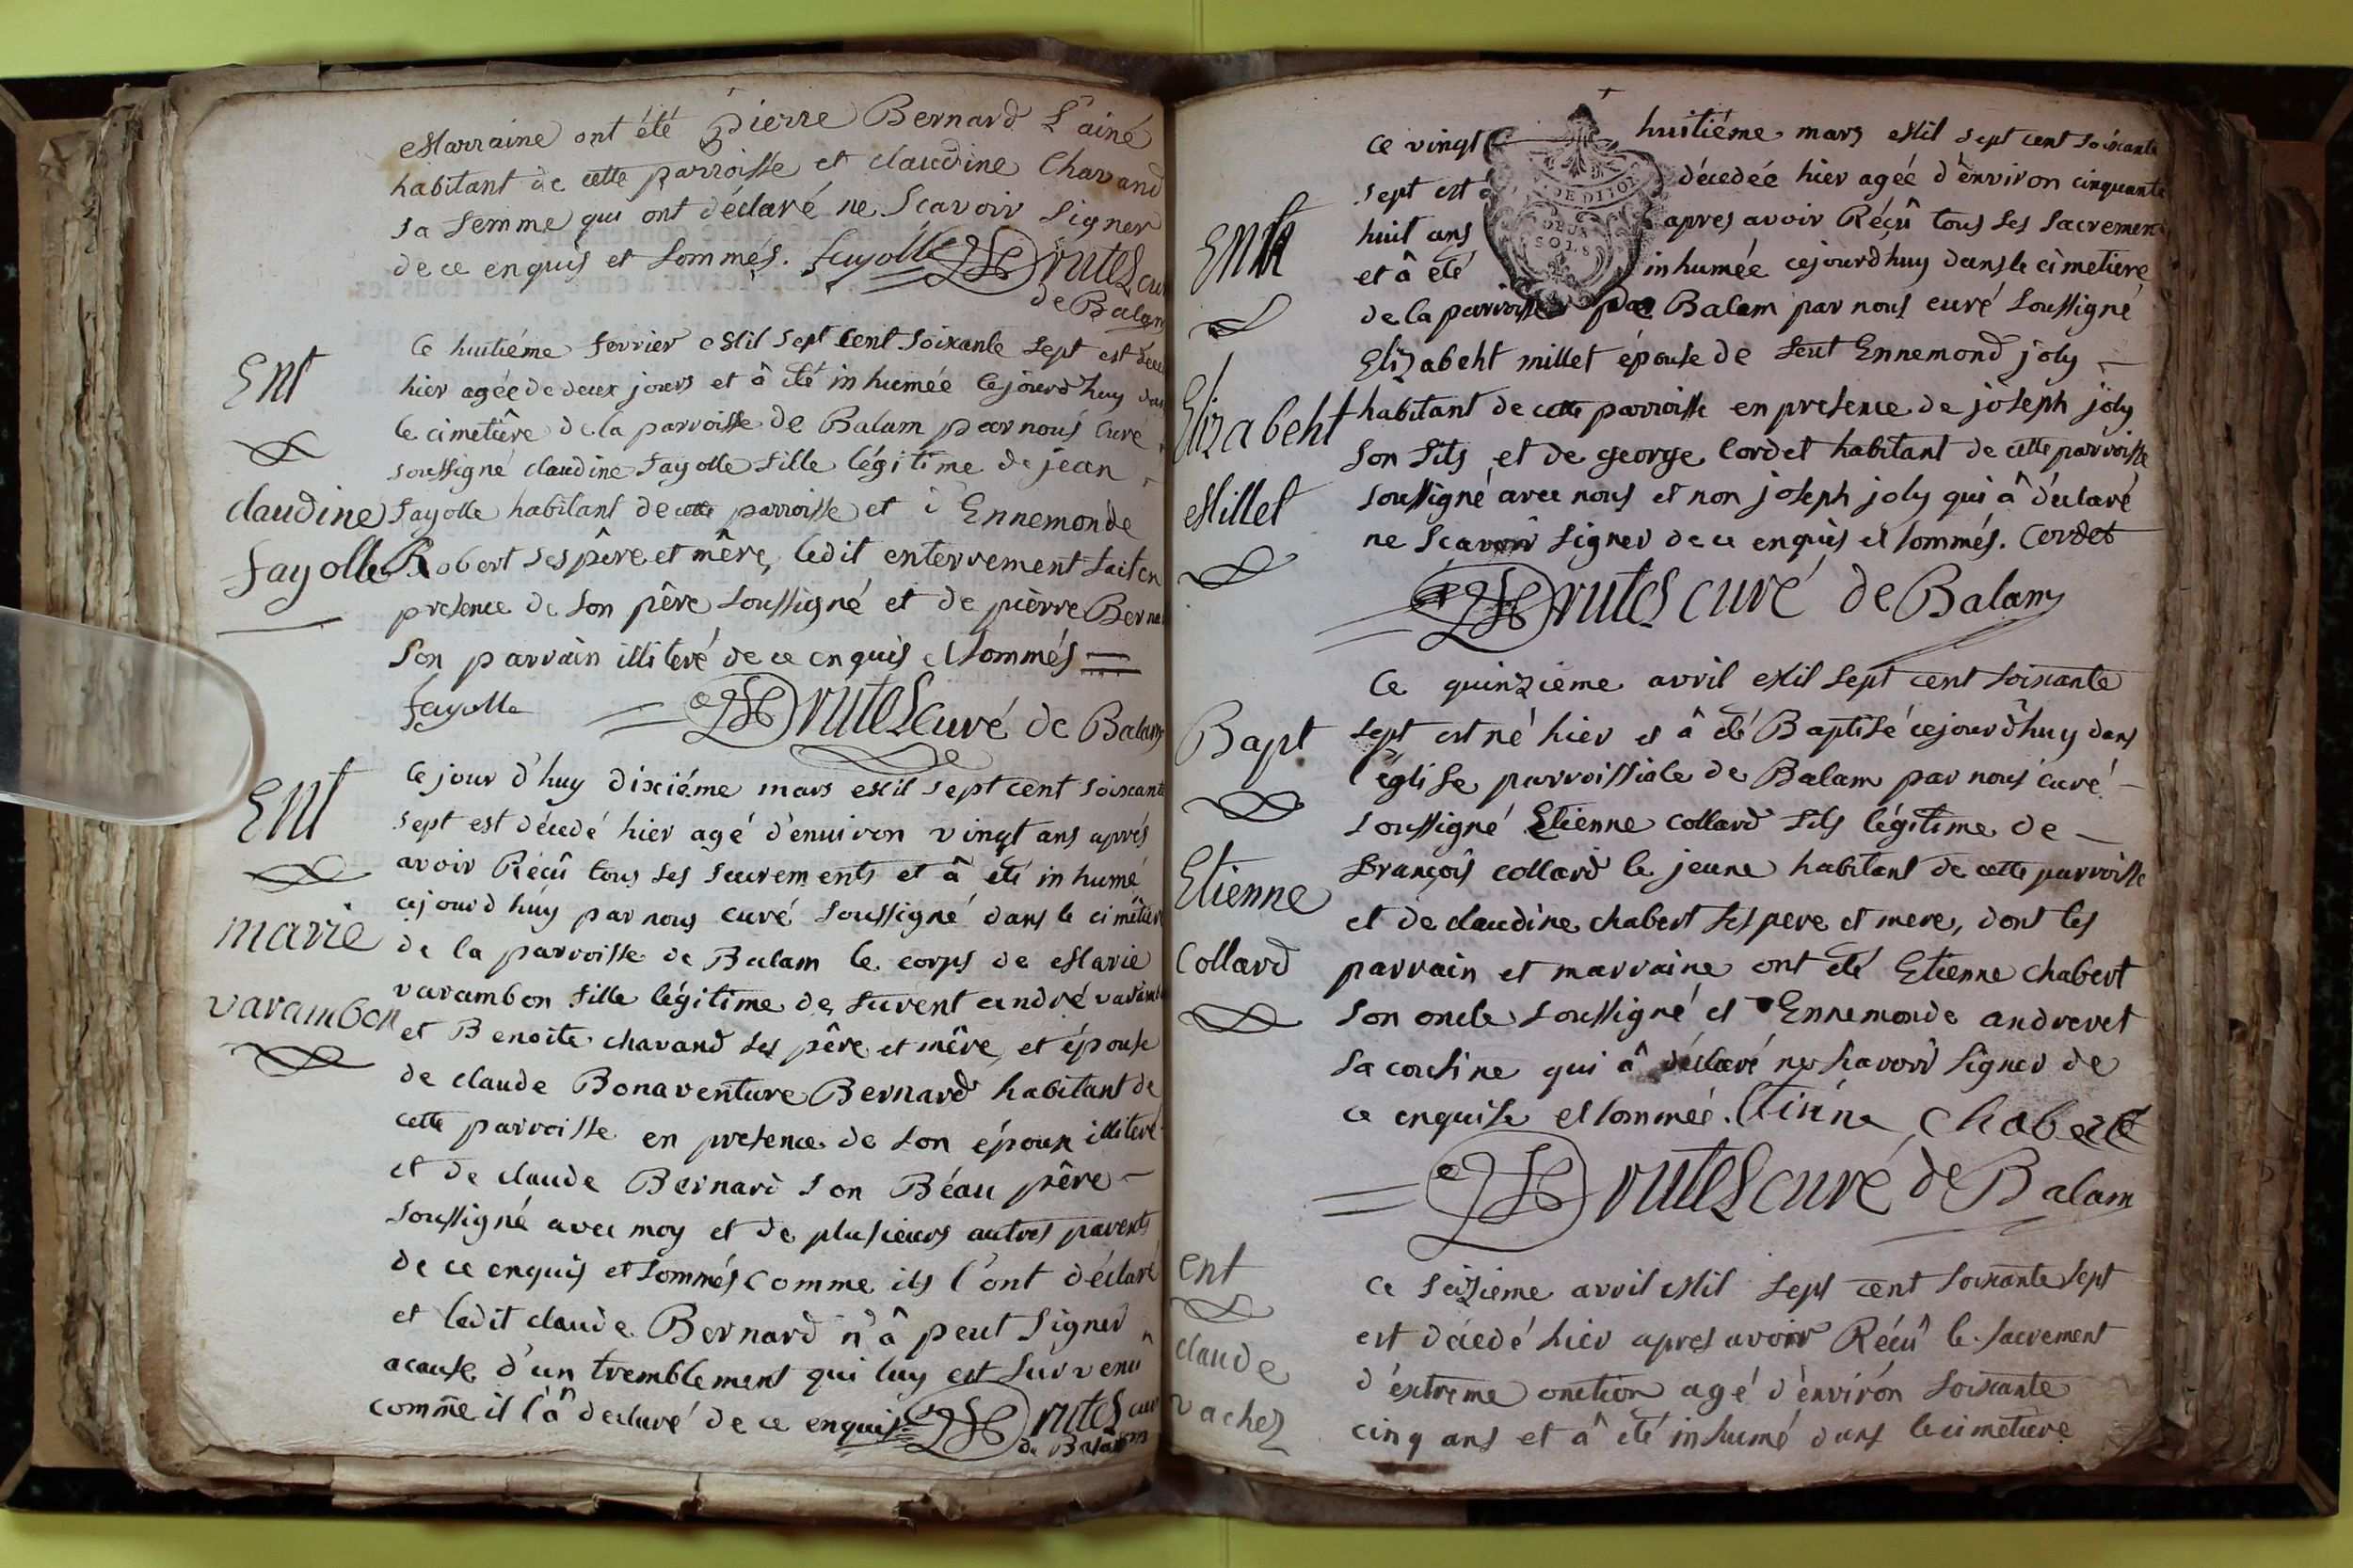 Marraine ont été pierre Bernard L'ainé
habitant de cette parroisse et claudine Chavand
sa femme qui ont déclaré ne Scavoir signer
de ce enquis et sommés. fayolle Drutel curé
de Balam
Ent
Claudine
fayolle
Ce huitiéme fevrier Mil sept Cent soixante sept est
hier agée de deux jours et â été inhumée Cejourd'huy
le cimetiêre de la parroisse de Balam par nous Curé
soussigné claudine fayolle fille légitime de jean
fayolle habitant de cette parroisse et d'Ennemonde
Robert ses pêre et mêre, ledit enterrement fait en
presence de son pêre soussigné et de piérre
son parrain illiteré de ce enquis et sommés
fayolle Drutel curé de Balam
Ent
marie
varambon
Cejour d'huy dixiéme mars Mil sept cent soixante
sept est décedé hier agé d'environ vingt ans aprés
avoir Réçû tous ses sacrements et â été inhumé
cejourd'huy par nous curé soussigné dans le cimêtiere
de la parroisse de Balam le corps de Marie
varambon fille légitime de andré
et Benoite chavand ses pêre et mêre, et épouse
de claude Bonaventure Bernard habitant de
cette parroisse en presence de son époux illiteré
et de claude Bernard son Béau pêre
soussigné avec moy et de plusieurs autres parents
de ce enquis et sommés comme ils l'ont déclaré
et ledit claude Bernard n'â peut signer
acause d'un tremblement qui luy est survenu
comme il l'â declaré de ce enquis. Drutel curé
de Balam
Ent
Elizabeht
Millet
Ce vingt huitiéme mars Mil sept cent soixante
sept est décedéé hier agéé d'environ cinquante
huit ans apres avoir Réçû tous ses sacrements
et â été inhumée cejourdhuy dans le cimetiere
de la parroisse de Balam par nous curé soussigné
DE DIJON
DEUX
SOLS
Elizabeht millet épouse de feut Ennemond joly
habitant de cette parroisse en presence de joseph joly
son fils et de george Cordet habitant de cette parroisse
soussigné avec nous et non joseph joly qui â déclaré
ne scavoir signer de ce enquis et sommés. Cordet
Drutel curé de Balam
Bapt
Etienne
Collard
Ce quinzieme avril Mil sept cent soixante
sept est né hier et â été Baptisé cejourd'huy dans
l'église parroissiale de Balam par nous curé
soussigné Etienne collard fils légitime de
françois collard le jeune habitant de cette parroisse
et de claudine chabert ses pere et mere, dont les
parrain et marraine ont été Etienne chabert
son oncle soussigné et Ennemonde andrevet
sa cousine qui â déclaré ne scavoir signer de
ce enquise et sommée. Etiénne Chabert
Drutel curé de Balam
ent
claude
vachez
Ce seizieme avril Mil sept cent soixante sept
est décedé hier apres avoir Réçû le sacrement
d'éxtreme onction agé d'environ soixante
cinq ans et â été inhumé dans le cimetiere